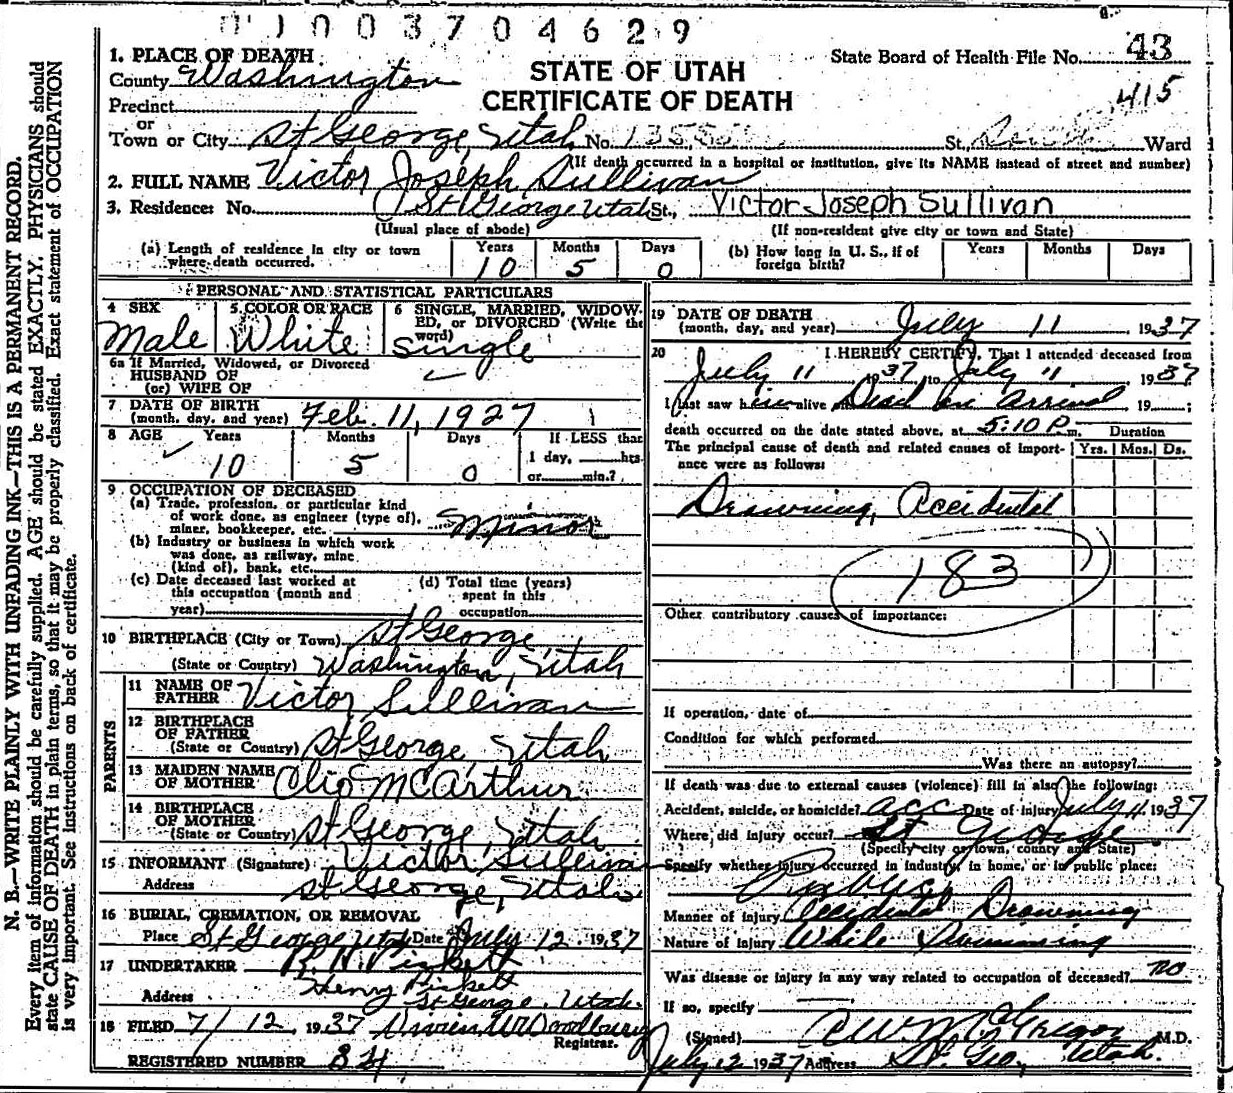 0 1 0 0 3 7 0 4 6 2 9
State Board of Health File No. 43
415
STATE OF UTAH
CERTIFICATE OF DEATH
1. PLACE OF DEATH
County Washington
Precinct
or
Town or City St George, Utah No. St., Ward
(If death occurred in a hospital or institution, give its NAME instead of street and number)
2. FULL NAME Victor Joseph Sullivan
3. Residence: No. St George Utah St., Victor Joseph Sullivan
(Usual place of abode) (If non-resident give city or town and State)
(a) Length of residence in city or town where death occurred. Years 10 Months 5 Days 0
(b) How long in U. S., if of foreign birth? Years Months Days
PERSONAL AND STATISTICAL PARTICULARS
4 SEX Male
5 COLOR OR RACE White
6 SINGLE, MARRIED, WIDOWED, or DIVORCED (Write the word) Single
6a If Married, Widowed, or Divorced
HUSBAND OF
(or) WIFE OF
7 DATE OF BIRTH
(month, day, and year) Feb. 11, 1927
8 AGE Years 10 Months 5 Days 0
If LESS than
1 day, hrs.
or min.?
9 OCCUPATION OF DECEASED
(a) Trade, profession, or particular kind
of work done, as engineer (type of),
miner, bookkeeper, etc. Minor
(b) Industry or business in which work
was done, as railway, mine
(kind of), bank, etc.
(c) Date deceased last worked at
this occupation (month and
year)
(d) Total time (years)
spent in this
occupation
10 BIRTHPLACE (City or Town) St George,
(State or Country) Washington, Utah
PARENTS
11 NAME OF
FATHER Victor Sullivan
12 BIRTHPLACE
OF FATHER
(State or Country) St George, Utah
13 MAIDEN NAME
OF MOTHER Clio McArthur
14 BIRTHPLACE
OF MOTHER
(State or Country) St George, Utah
15 INFORMANT (Signature) Victor Sullivan
Address St George, Utah
16 BURIAL, CREMATION, OR REMOVAL
Place St George Utah Date July 12, 1937
17 UNDERTAKER
Henry Pickett
Address St George, Utah.
18 FILED 7/12, 1937 Woodbury
Registrar.
REGISTERED NUMBER 34
19 DATE OF DEATH
(month, day, and year) July 11 1937
20 I HEREBY CERTIFY, That I attended deceased from
July 11 1937 to July 11 1937
I last saw him alive on Dead on arrival 19 ;
death occurred on the date stated above, at 5:10 P m.
The principal cause of death and related causes of importance were as follows:
Duration
Yrs. Mos. Ds.
Drowning, Accidental
183
Other contributory causes of importance:
If operation, date of
Condition for which performed
Was there an autopsy?
If death was due to external causes (violence) fill in also the following:
Accident, suicide, or homicide? acc Date of injury July 11 1937
Where did injury occur? St George
(Specify city or town, county and State)
Specify whether injury occurred in industry, in home, or in public place:
Public
Manner of injury Accidental Drowning
Nature of injury While Swimming
Was disease or injury in any way related to occupation of deceased? no
If so, specify
(Signed) McGregor M.D.
July 12 1937 Address St. Geo, Utah.
N. B.—WRITE PLAINLY WITH UNFADING INK—THIS IS A PERMANENT RECORD.
Every item of information should be carefully supplied. AGE should be stated EXACTLY. PHYSICIANS should
state CAUSE OF DEATH in plain terms, so that it may be properly classified. Exact statement of OCCUPATION
is very important. See instructions on back of certificate.